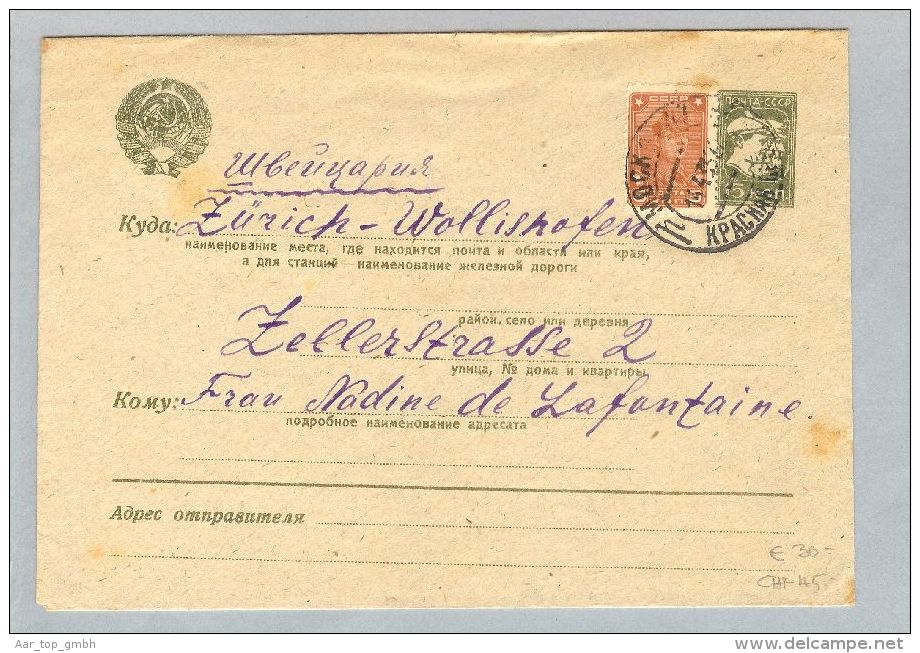 Швейцария
Куда: Zürich-Wollishofen
наименование места, где находится почта и области или края,
а для станций наименование железной дороги
район, село или деревня
Zellerstrasse 2
улица, № дома и квартиры
Кому: Frau Nadine de Lafontaine.
подробное наименование адресата
Адрес отправителя
СССР
ПОЧТА·СССР
€ 30-
CHF 45.-
Aar_top_gmbh
www.delcampe.net